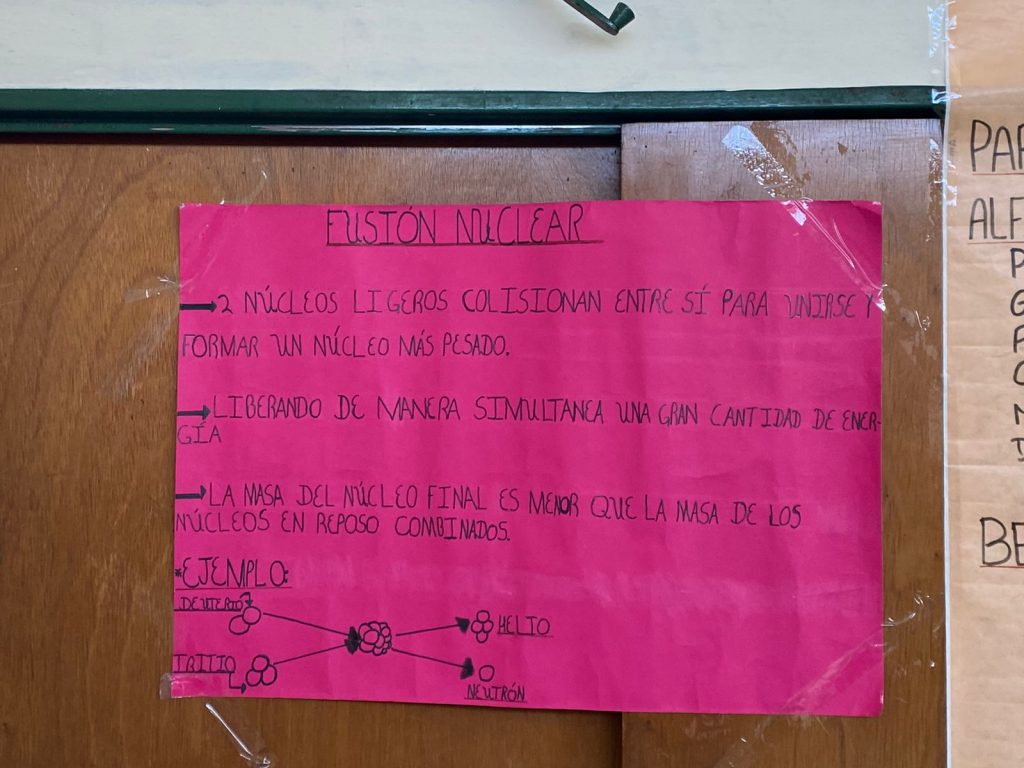 FUSIÓN NUCLEAR
2 NÚCLEOS LIGEROS COLISIONAN ENTRE SÍ PARA UNIRSE Y
FORMAR UN NÚCLEO MÁS PESADO.
LIBERANDO DE MANERA SIMULTANEA UNA GRAN CANTIDAD DE ENER-
GÍA
LA MASA DEL NÚCLEO FINAL ES MENOR QUE LA MASA DE LOS
NÚCLEOS EN REPOSO COMBINADOS.
*EJEMPLO:
DEUTERIO
HELIO
TRITIO
NEUTRÓN